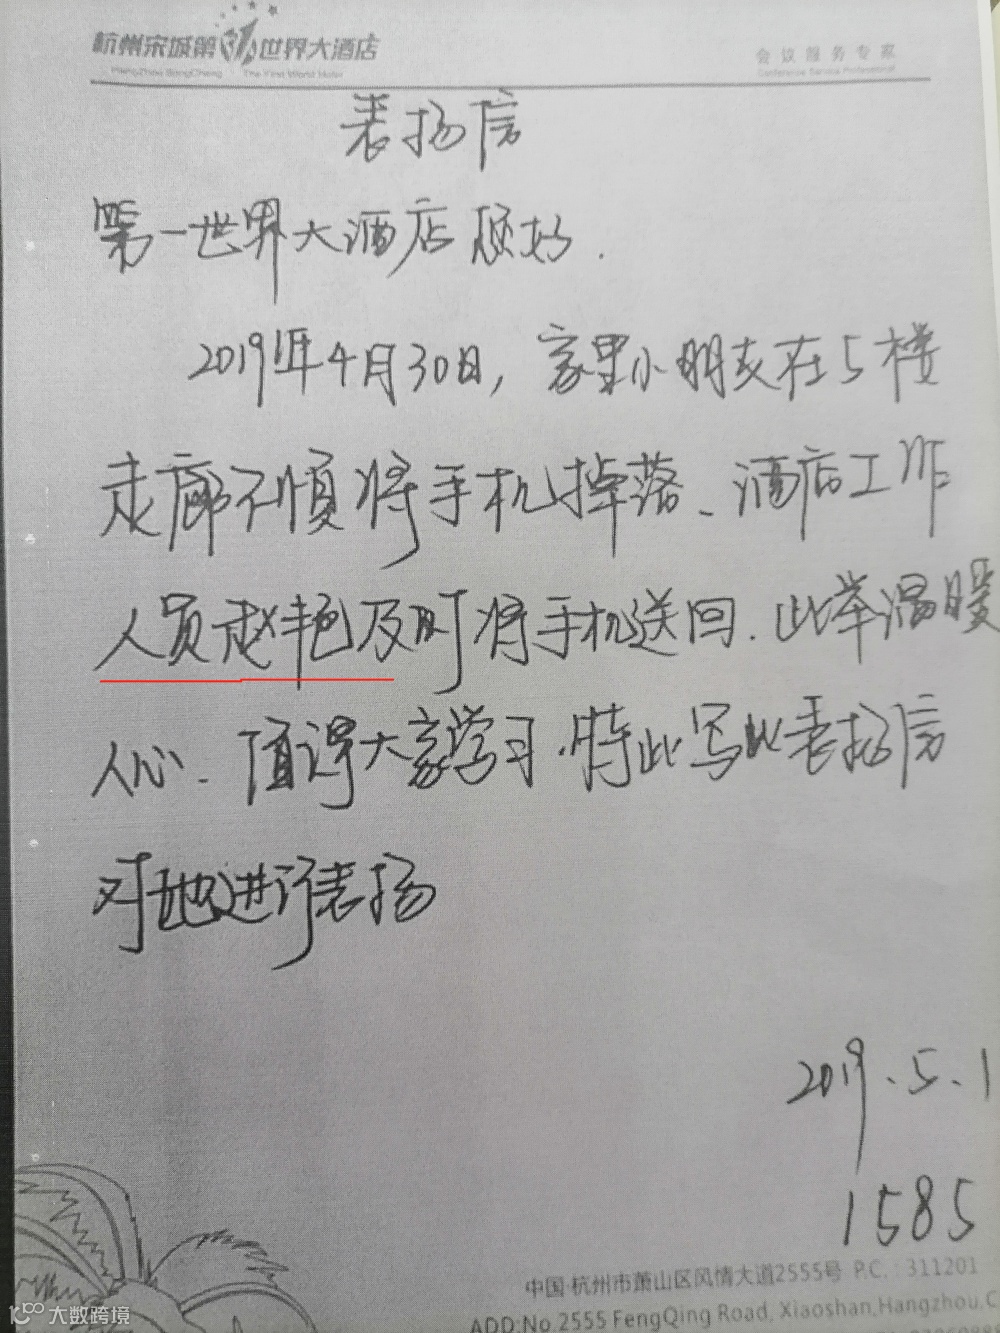 杭州宋城第一世界大酒店
HangZhou SongCheng The First World Hotel
会议服务专家
Conference Service Professional
表扬信
第一世界大酒店您好.
2019年4月30日,家里小朋友在5楼
走廊不慎将手机掉落、酒店工作
人员赵艳及时将手机送回.此举温暖
人心.值得大家学习.特此写此表扬信
对她进行表扬
2019.5.1
1585
中国·杭州市萧山区风情大道2555号 P.C.:311201
ADD:No.2555 FengQing Road, Xiaoshan,Hangzhou,C
大数跨境